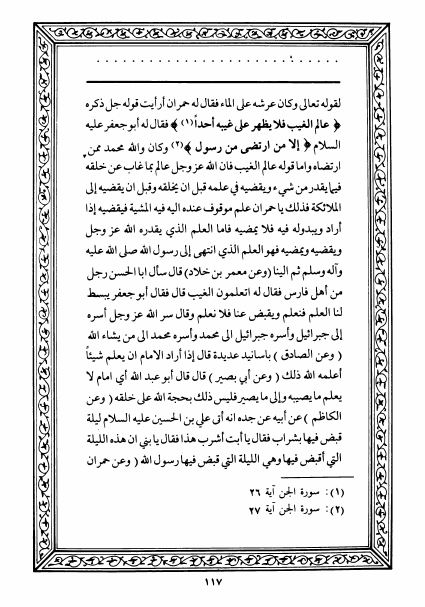 لقوله تعالى وكان عرشه على الماء فقال له حمران أرأيت قوله جل ذكره
﴿ عالم الغيب فلا يظهر على غيبه أحداً (١) ﴾ فقال له أبو جعفر عليه
السلام ﴿ إلا من ارتضى من رسول ﴾(٢) وكان والله محمد ممن
ارتضاه واما قوله عالم الغيب فان الله عز وجل عالم بما غاب عن خلقه
فيما يقدر من شيء ويقضيه في علمه قبل ان يخلقه وقبل ان يقضيه إلى
الملائكة فذلك يا حمران علم موقوف عنده اليه فيه المشية فيقضيه إذا
أراد ويبدو له فيه فلا يمضيه فاما العلم الذي يقدره الله عز وجل
ويقضيه ويمضيه فهو العلم الذي انتهى إلى رسول الله صلى الله عليه
وآله وسلم ثم الينا (وعن معمر بن خلاد) قال سأل ابا الحسن رجل
من أهل فارس فقال له اتعلمون الغيب قال فقال أبو جعفر يبسط
لنا العلم فنعلم ويقبض عنا فلا نعلم وقال سر الله عز وجل أسره
إلى جبرائيل وأسره جبرائيل الى محمد وأسره محمد الى من يشاء الله
( وعن الصادق ) باسانيد عديدة قال إذا أراد الامام ان يعلم شيئاً
أعلمه الله ذلك ( وعن أبي بصير ) قال قال أبو عبد الله أي امام لا
يعلم ما يصيبه وإلى ما يصير فليس ذلك بحجة الله على خلقه ( وعن
الكاظم ) عن أبيه عن جده انه أتى علي بن الحسين عليه السلام ليلة
قبض فيها بشراب فقال يا أبت أشرب هذا فقال يا بني ان هذه الليلة
التي أقبض فيها وهي الليلة التي قبض فيها رسول الله ( وعن حمران
(١): سورة الجن آية ٢٦
(٢): سورة الجن آية ٢٧
١١٧